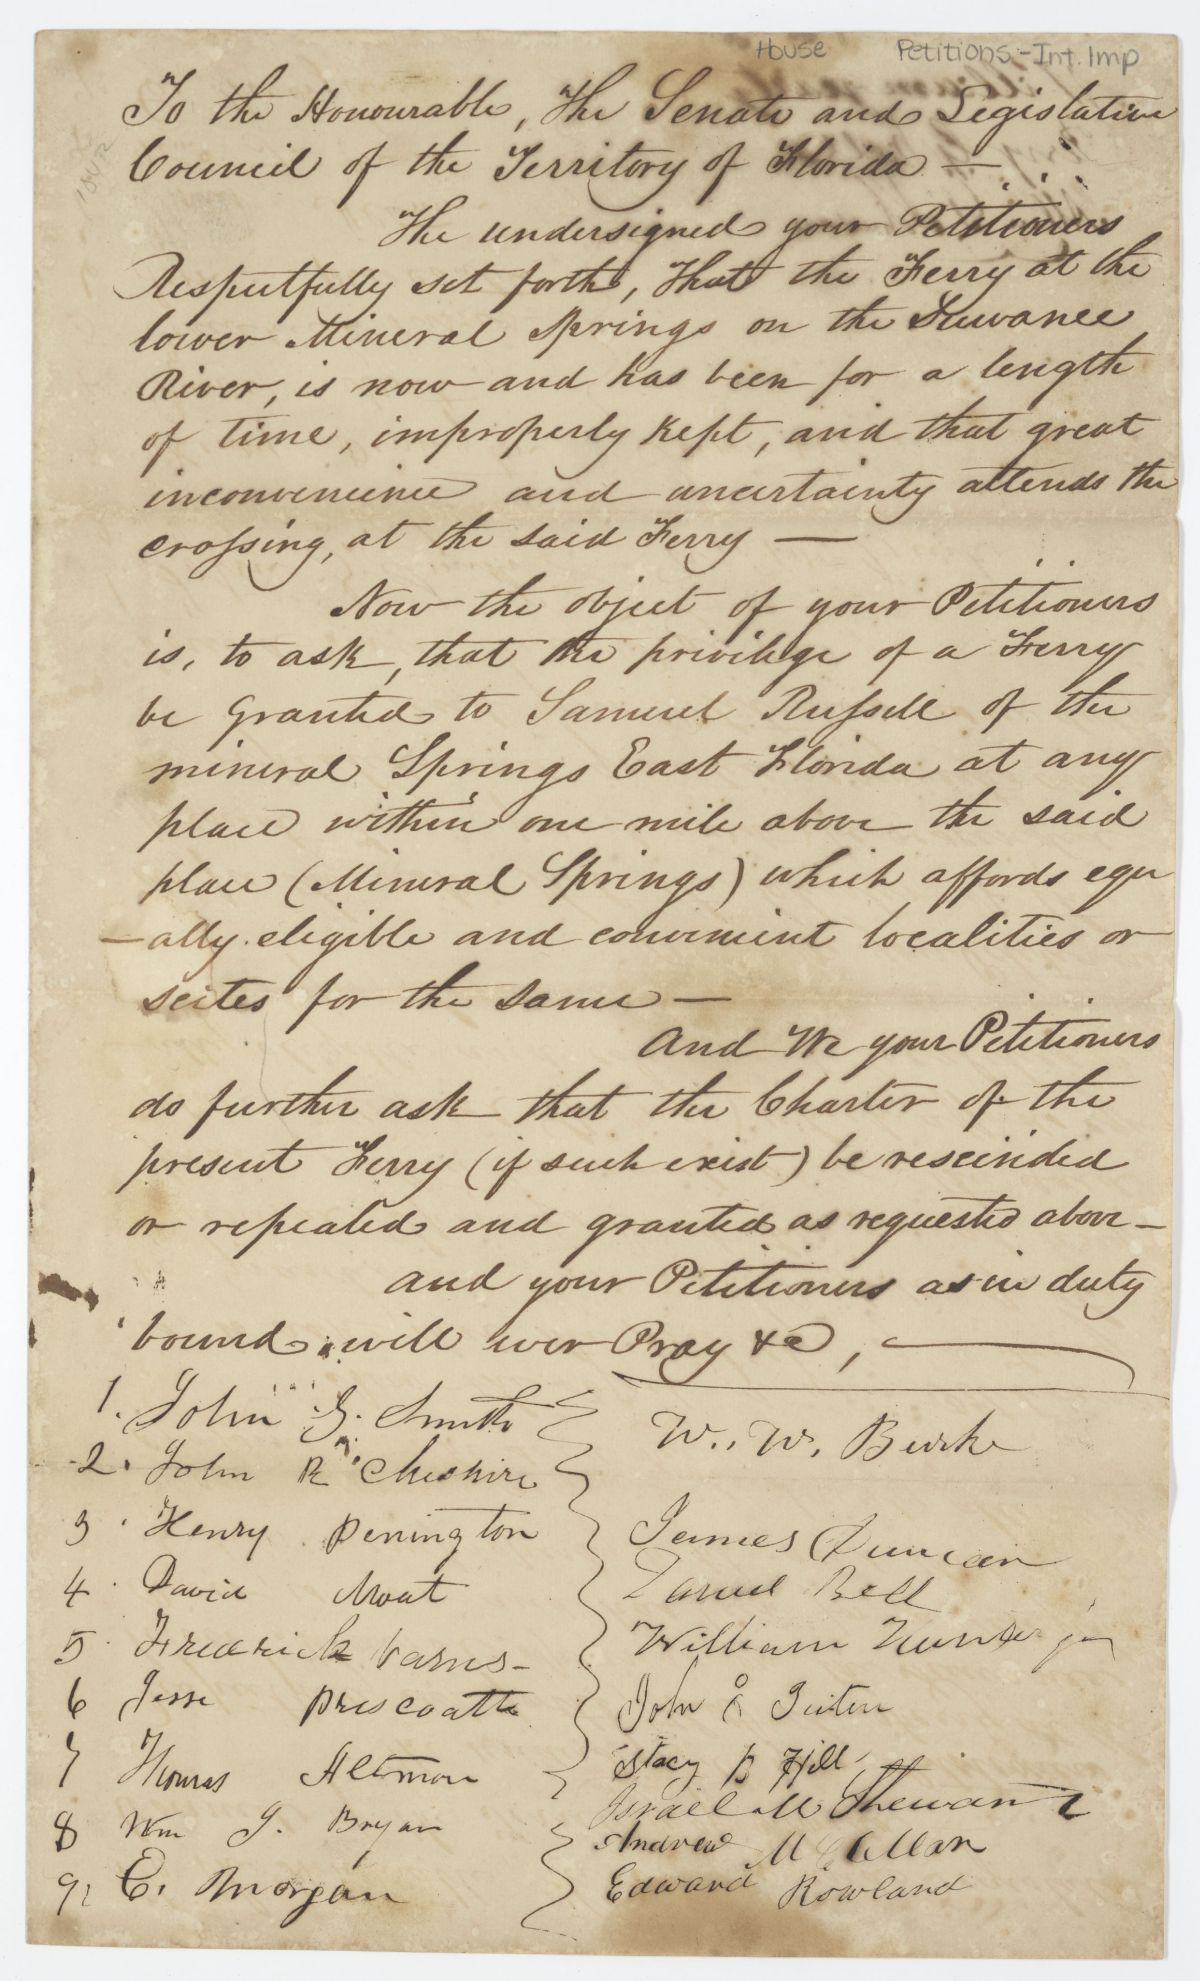 House Petitions-Int. Imp
1842
To the Honourable, The Senate and Legislative
Council of the Territory of Florida —
The undersigned your Petitioners
Respectfully set forth, That the Ferry at the
lower Mineral Springs on the Suwanee
River, is now and has been for a length
of time, improperly kept, and that great
inconvenience and uncertainty attends the
crossing, at the said Ferry —
Now the object of your Petitioners
is, to ask, that the privilege of a Ferry
be Granted to Samuel Russell of the
mineral Springs East Florida at any
place within one mile above the said
place (Mineral Springs) which affords equ
-ally eligible and convenient localities or
scites for the same —
And We your Petitioners
do further ask that the Charter of the
present Ferry (if such exist) be rescinded
or repealed and granted as requested above —
and your Petitioners as in duty
bound will ever Pray &c,
1. John G. Smith
W. W. Burke
2. John R Cheshire
3 Henry Penington
James Duncan
4 David Moat
Daniel Bell
5 Frederick Varns
William Hunter jn
6 Jesse Prescoatt
John
7 Thomas Altman
Stacy B Hill
Israel M Stewart
8 Wm J. Bryan
Andrew McClellan
9 E. Morgan
Edward Rowland